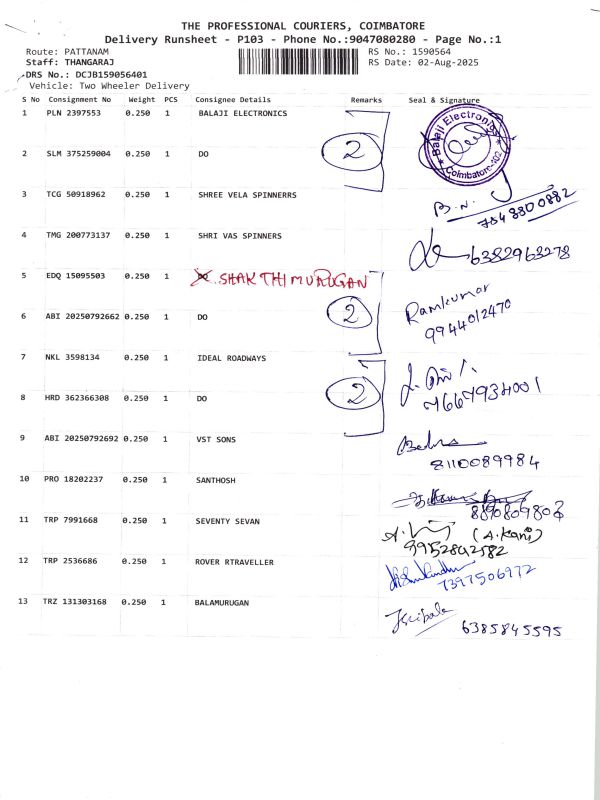 THE PROFESSIONAL COURIERS, COIMBATORE
Delivery Runsheet - P103 - Phone No.:9047080280 - Page No.:1
Route: PATTANAM
RS No.: 1590564
Staff: THANGARAJ
RS Date: 02-Aug-2025
DRS No.: DCJB159056401
Vehicle: Two Wheeler Delivery
S No Consignment No Weight PCS Consignee Details Remarks Seal & Signature
1 PLN 2397553 0.250 1 BALAJI ELECTRONICS
Balaji Electronics
Coimbatore-402
2 SLM 375259004 0.250 1 DO 2
3 TCG 50918962 0.250 1 SHREE VELA SPINNERRS
B.N.
784 8800882
4 TMG 200773137 0.250 1 SHRI VAS SPINNERS
6382963278
5 EDQ 15095503 0.250 1 DO. SHAKTHI MURUGAN
6 ABI 20250792662 0.250 1 DO 2 Ramkumar
9944012470
7 NKL 3598134 0.250 1 IDEAL ROADWAYS
8 HRD 362366308 0.250 1 DO 2
7667934001
9 ABI 20250792692 0.250 1 VST SONS
8110089984
10 PRO 18202237 0.250 1 SANTHOSH
11 TRP 7991668 0.250 1 SEVENTY SEVAN
(A. Kani)
9952892582
12 TRP 2536686 0.250 1 ROVER RTRAVELLER
7397506972
13 TRZ 131303168 0.250 1 BALAMURUGAN
6385845595